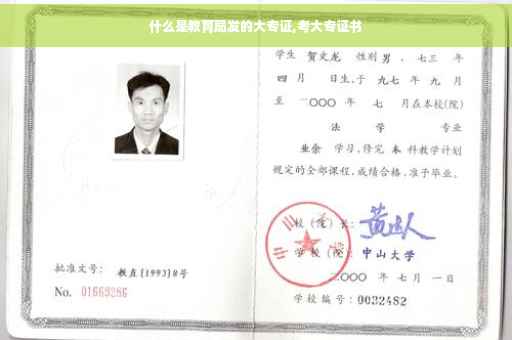 什么是教育局发的大专证,考大专证书
学生 贺文龙 性别 男 、七三 年
四 月 日生,于 九七 年 九 月
至 二〇〇〇 年 七 月在本校(院)
法 学 专业
业余 学习,修完 本 科教学计划
规定的全部课程,成绩合格,准予毕业。
校(院)长:
学校(院): 中山大学
二〇〇〇 年 七 月 一 日
批准文号: 教直[1993]8号
No. 01669286
学校编号: 0032482